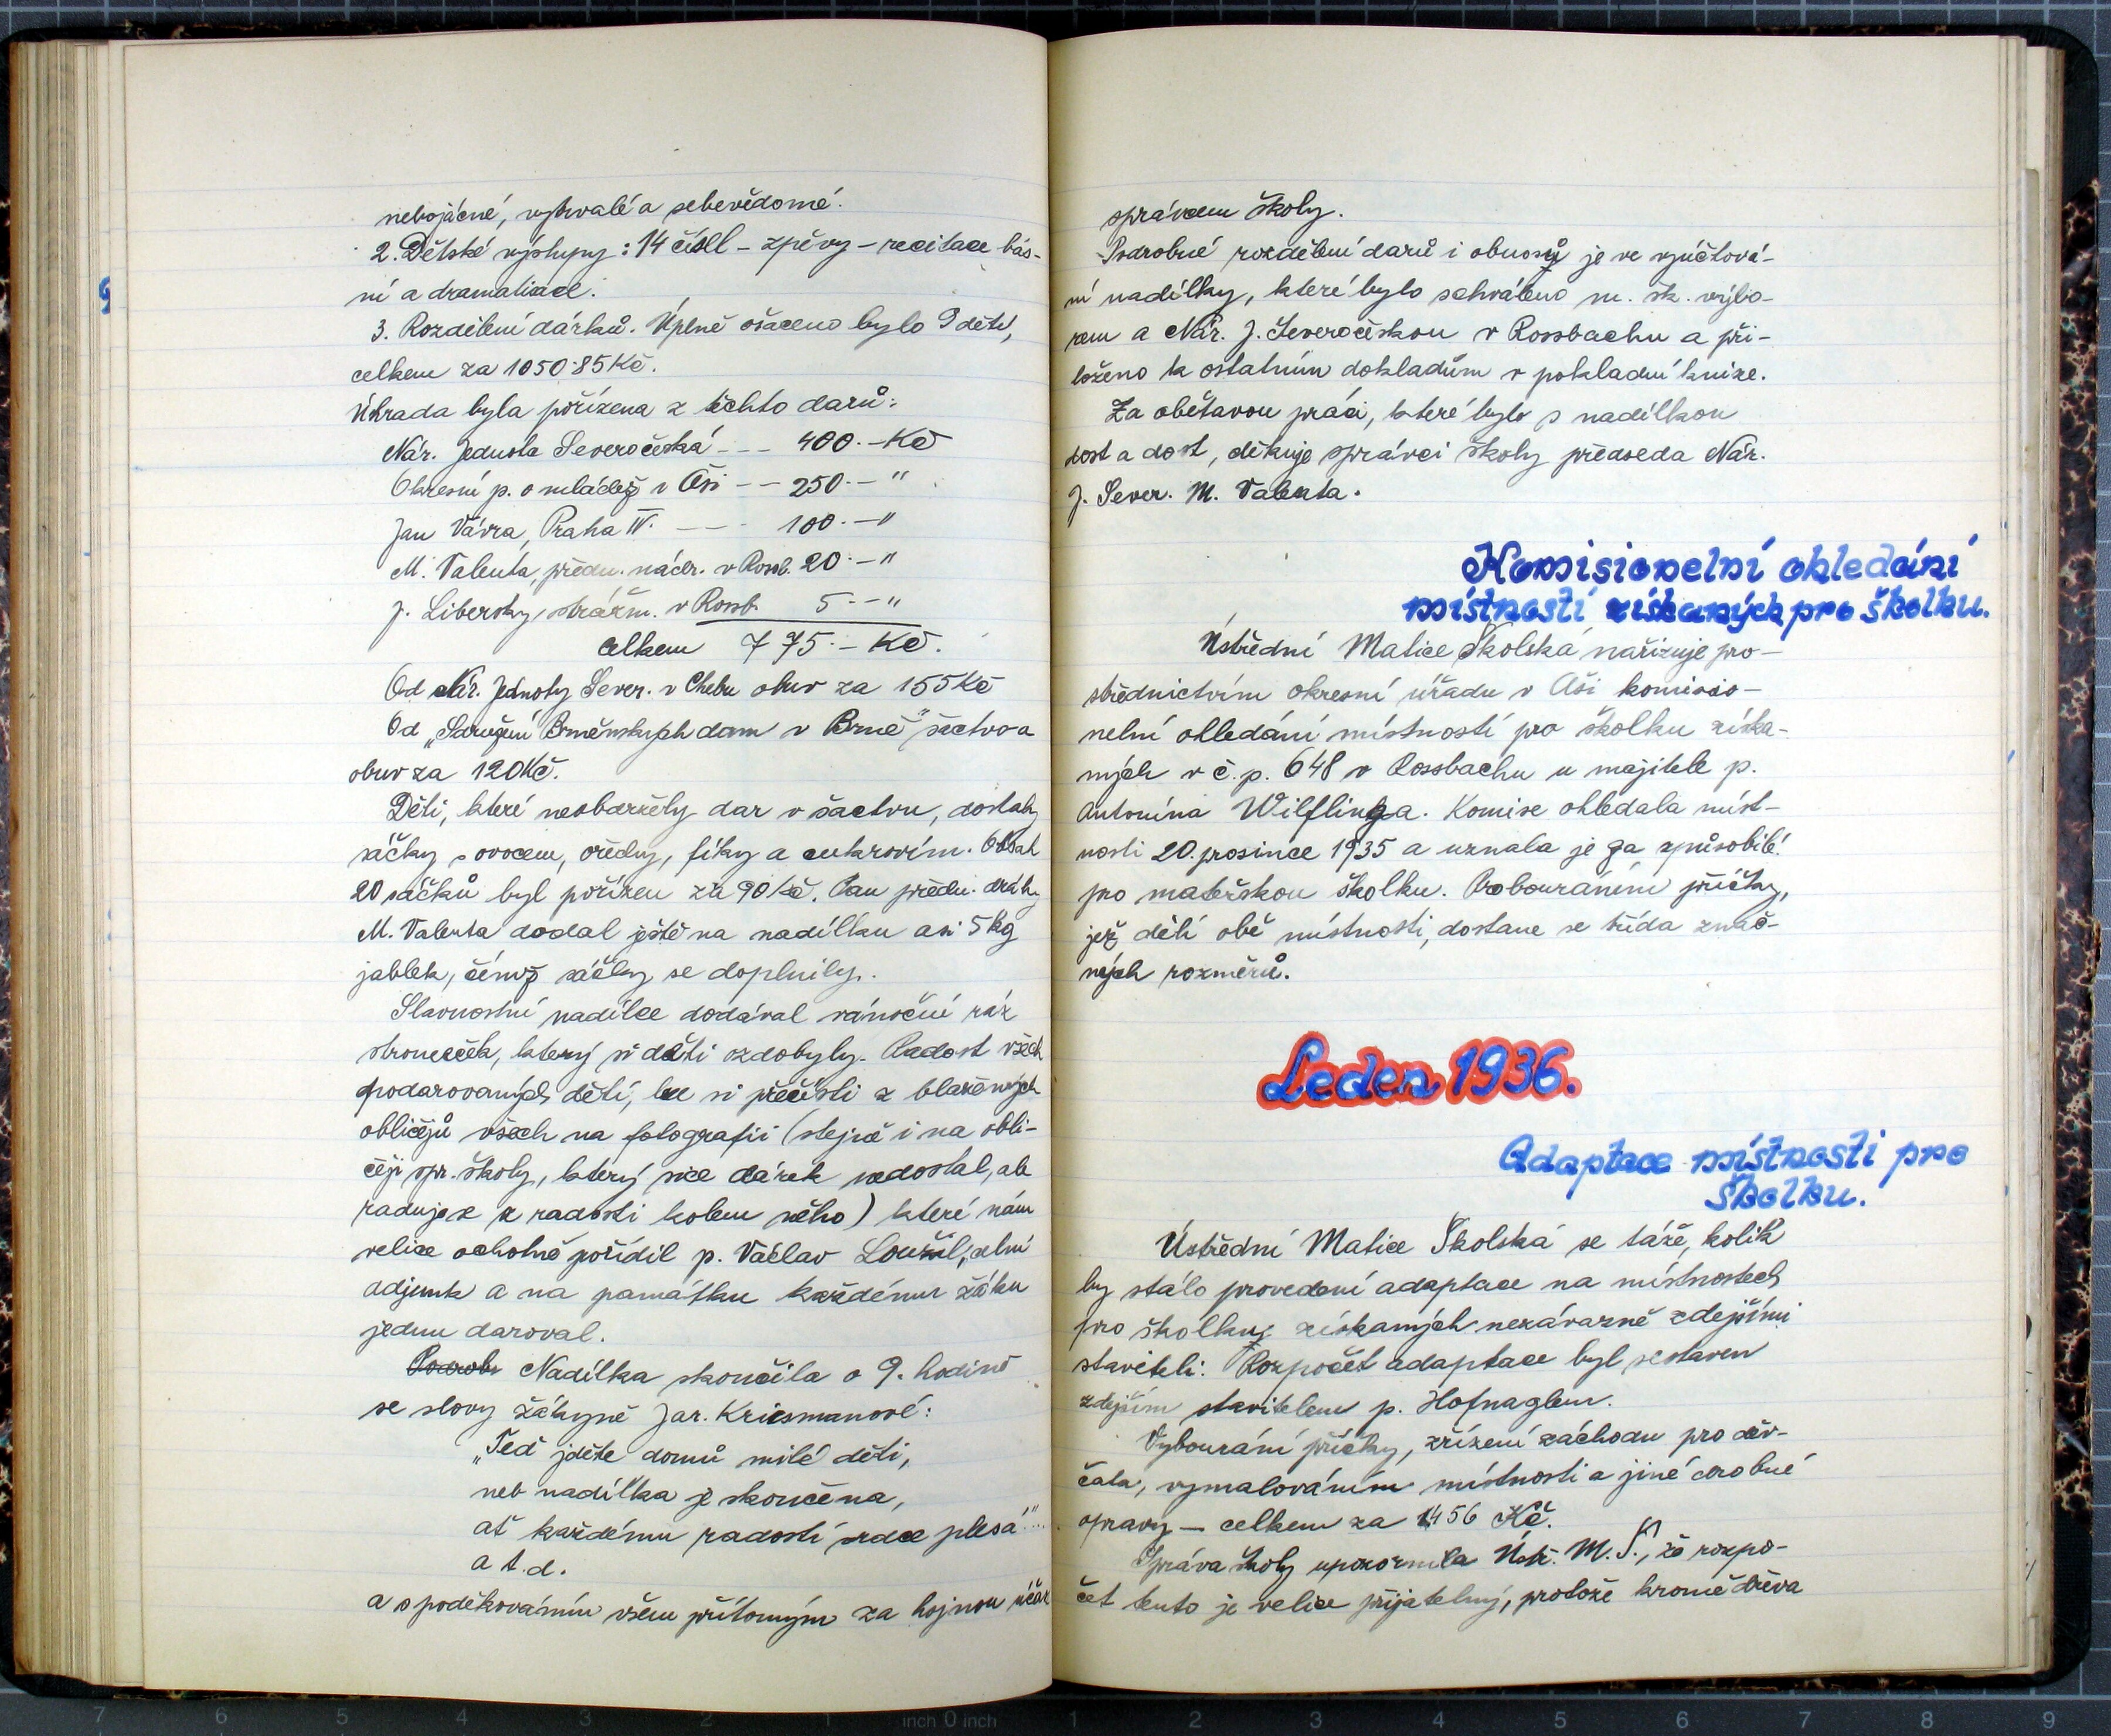 nebojácné, vytrvalé a sebevědomé.
2. Dětské výstupy: 14 čísel - zpěvy - recitace bás-
ní a dramatizace.
3. Rozdělení dárků. Úplně ošaceno bylo 9 dětí,
celkem za 1050·85 Kč.
Úhrada byla pořízena z těchto darů:
Nár. Jednota Severočeská --- 400·-Kč
Okresní p. o mládež v Aši -- 250·- "
Jan Vávra, Praha IV. --- 100·- "
M. Valenta, předn. nádr. v Rossb. 20·- "
J. Libersky, strážm. v Rossb. 5·- "
celkem 775·- Kč.
Od Nár. Jednoty Sever. v Chebu obuv za 155 Kč
Od „Sdružení Brněnských dam v Brně" šactvo a
obuv za 120 Kč.
Děti, které neobdržely dar v šactvu, dostaly
sáčky s ovocem, ořechy, fíky a cukrovím. Obsah
20 sáčků byl pořízen za 90 Kč. Pan předn. dráhy
M. Valenta dodal ještě na nadílku asi 5 kg
jablek, čímž sáčky se doplnily.
Slavnostní nadílce dodával vánoční ráz
stromeček, který si děti ozdobyly. Radost všech
podarovaných dětí, lze si přečísti z blažených
obličejů všech na fotografii (stejně i na obli-
čeji spr. školy, který sice dárek nedostal, ale
raduje se z radosti kolem něho) které nám
velice ochotně pořídil p. Václav Loužil, celní
adjunk a na památku každému žáku
jednu daroval.
Podrob. Nadílka skončila o 9. hodině
se slovy žákyně Jar. Kriesmanové:
„Teď jděte domů milé děti,
neb nadílka je skončena,
ať každému radostí srdce plesá"...
a t.d.
a s poděkováním všem přítomným za hojnou účast
správcem školy.
Podrobné rozdělení darů i obnosů je ve vyúčtová-
ní nadílky, které bylo schváleno m. šk. výbo-
rem a Nár. J. Severočeskou v Rossbachu a při-
loženo k ostatním dokladům v pokladní knize.
Za obětavou práci, které bylo s nadílkou
dost a dost, děkuje správci školy předseda Nár.
J. Sever. M. Valenta.
Komisionelní ohledání
místností získaných pro školku.
Ústřední Matice Školská nařizuje pro-
střednictvím okresní úřadu v Aši komisio-
nelní ohledání místností pro školku získa-
ných v č. p. 648 v Rossbachu u majitele p.
Antonína Wilflinga. Komise ohledala míst-
nosti 20. prosince 1935 a uznala je za způsobilé
pro mateřskou školku. Probouráním příčky,
jež dělí obě místnosti, dostane se třída znač-
ných rozměrů.
Leden 1936.
Adaptace místnosti pro
školku.
Ústřední Matice Školská se táže, kolik
by stálo provedení adaptace na místnostech
pro školku získaných nezávazně zdejšími
staviteli. Rozpočet adaptace byl sestaven
zdejším stavitelem p. Hofnaglem.
Vybourání příčky, zřízení záchodu pro děv-
čata, vymalováním místnosti a jiné drobné
opravy - celkem za 1456 Kč.
Správa školy upozornila Ústř. M. Š., že rozpo-
čet tento je velice přijatelný, protože kromě dřeva